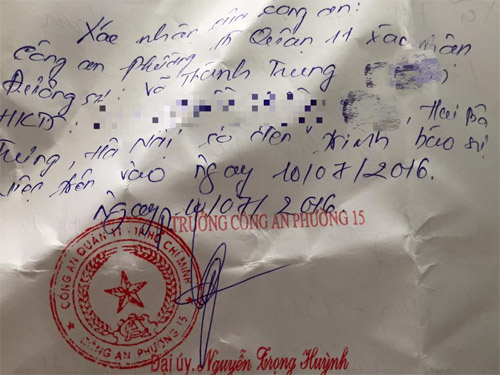 Xác nhận của công an:
Công an phường 15 Quận 11 xác nhận
Đương sự: Võ Thành Trung
HKTT: , Hai Bà
Trưng, Hà Nội, có đến trình báo sự
việc trên vào ngày 10/07/2016.
Ngày 14/07/2016
TRƯỞNG CÔNG AN PHƯỜNG 15
CÔNG AN QUẬN 11 - T.P HỒ CHÍ MINH
CÔNG AN PHƯỜNG 15
Đại úy. Nguyễn Trọng Huỳnh